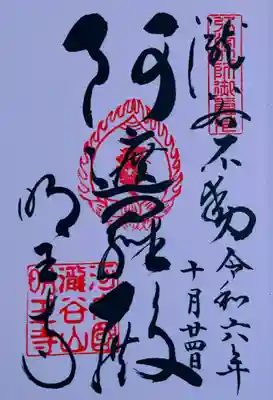 瀧谷不動
令和六年
十月廿四日
阿遮羅殿
明王寺
河内國
瀧谷山
明王寺